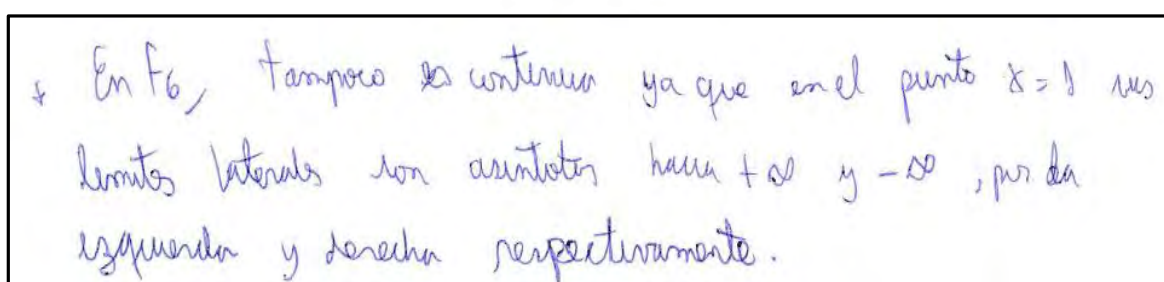 * En f6, tampoco es continua ya que en el punto x=1 sus
limites laterales son asintotas hacia +∞ y -∞, por la
izquierda y derecha respectivamente.